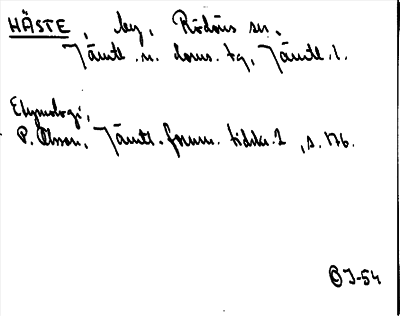 HÄSTE, by, Rödöns sn,
Jämtl. n. doms. tg, Jämtl. l.
Etymologi,
P. Olsson, Jämtl. fornm. tidskr. 1, s. 176.
J-54